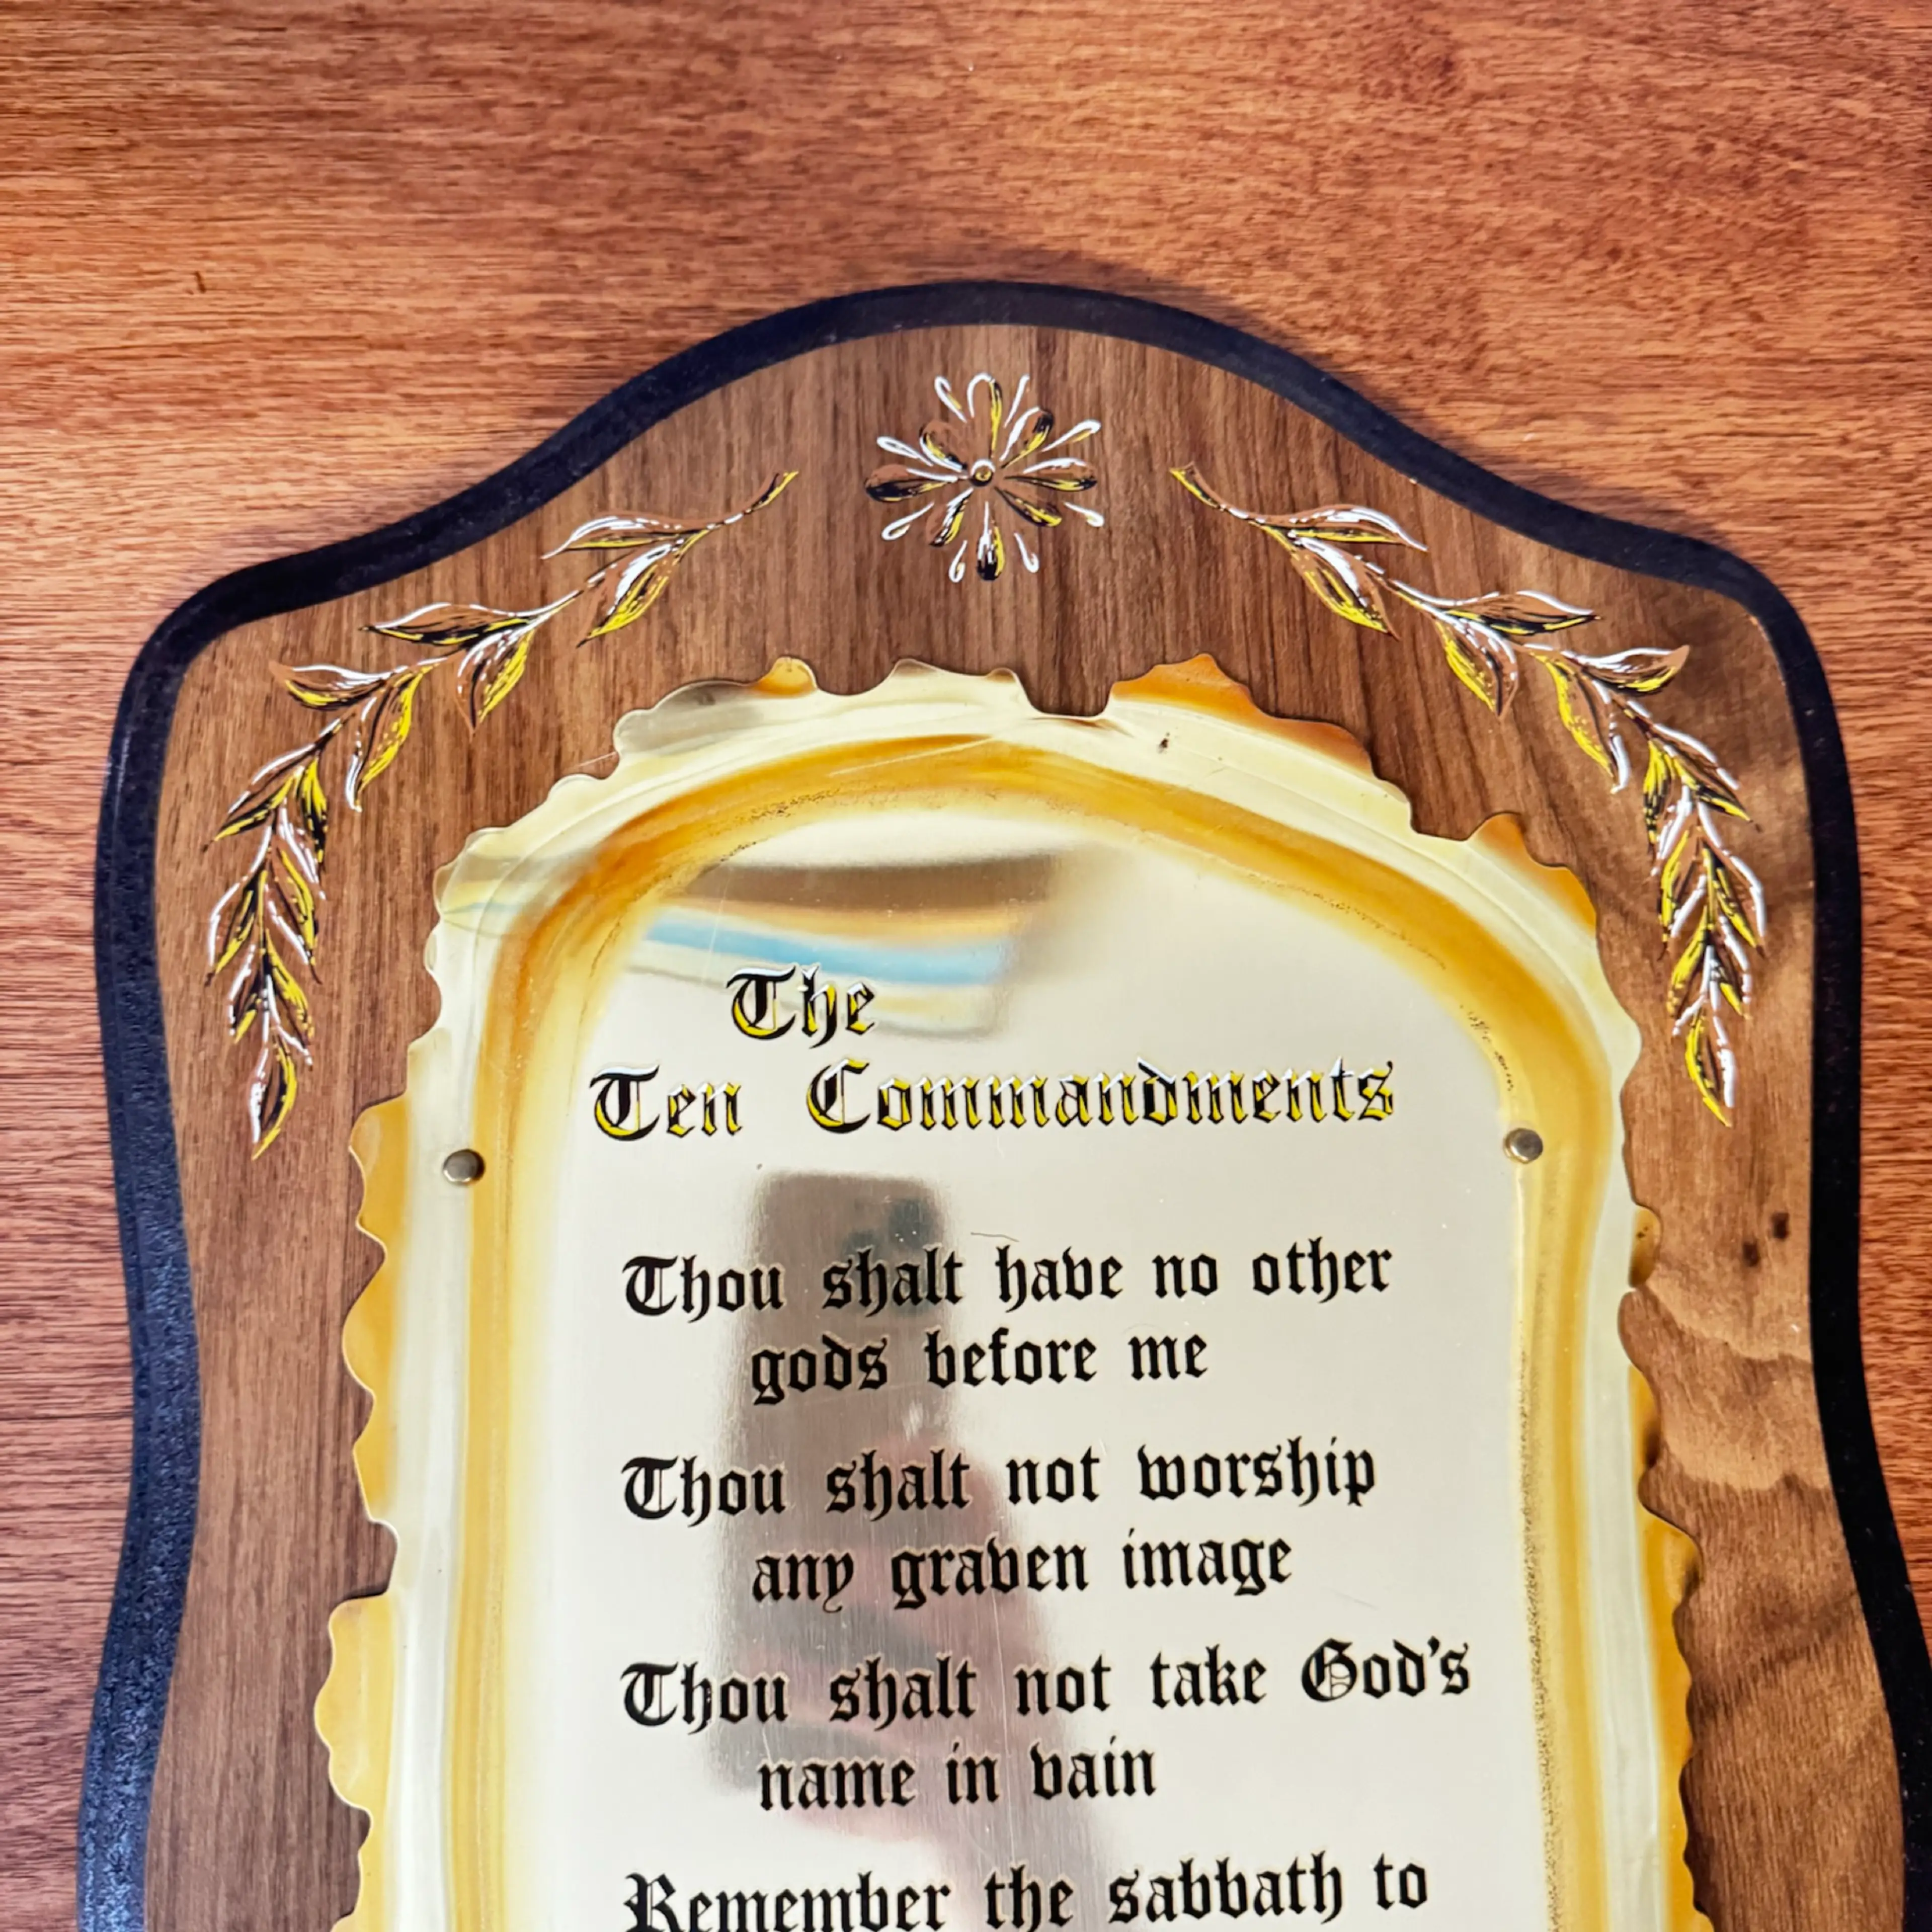 The
Ten Commandments
Thou shalt have no other
gods before me
Thou shalt not worship
any graven image
Thou shalt not take God's
name in vain
Remember the sabbath to